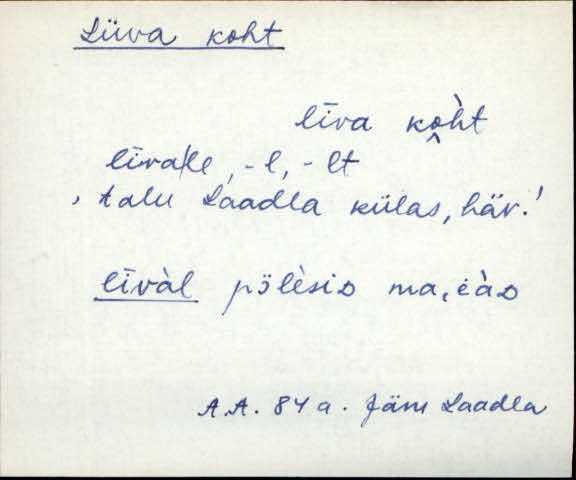 Liiva koht
līva kòht
līvalle, -l, -lt
, talu Laadla külas, häv.!
līvàl põlèsiᴅ ma,èàᴅ
A.A. 84 a. Jäm Laadla